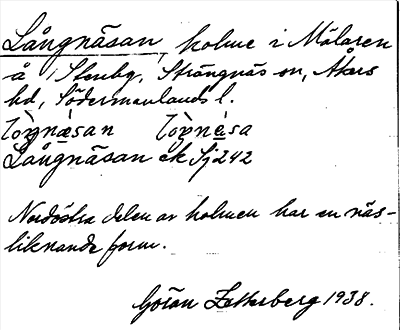 Långnäsan, holme i Mälaren
å i Stenby, Strängnäs on, Åkers
hd, Södermanlands l.
Långnäsan ek Sj 242
Nordöstra delen av holmen har en näs-
liknande form.
Göran Zetterberg 1938.